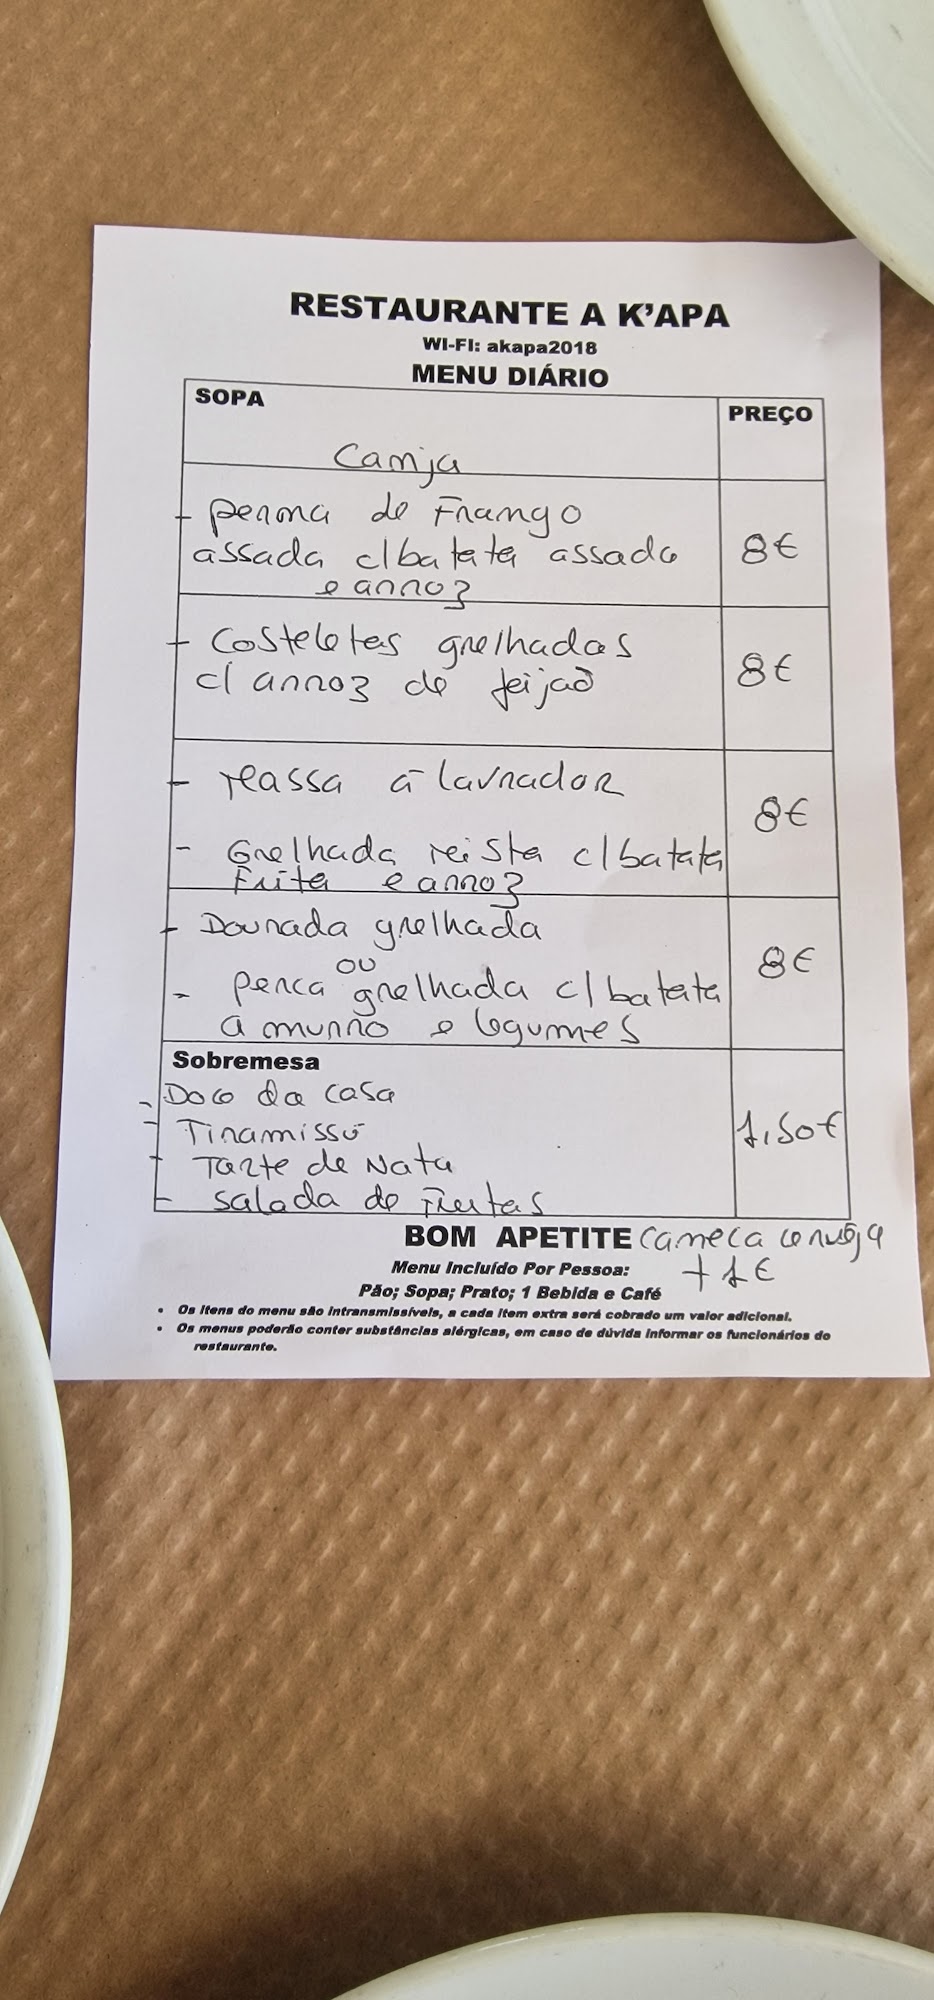 RESTAURANTE A K'APA
WI-FI: akapa2018
MENU DIÁRIO
SOPA
PREÇO
Canja
- perna de Frango
assada c/batata assada
e arroz
8€
- Costeletas grelhadas
c/ arroz de feijão
8€
- Massa à lavrador
8€
- Grelhada mista c/batata
Frita e arroz
- Dourada grelhada
ou
8€
- perca grelhada c/batata
a murro e legumes
Sobremesa
- Doce da casa
- Tiramissú
1,50€
- Tarte de Nata
- Salada de Frutas
BOM APETITE caneca cerveja
Menu Incluído Por Pessoa: +1€
Pão; Sopa; Prato; 1 Bebida e Café
• Os itens do menu são intransmissíveis, a cada item extra será cobrado um valor adicional.
• Os menus poderão conter substâncias alérgicas, em caso de dúvida informar os funcionários do
restaurante.